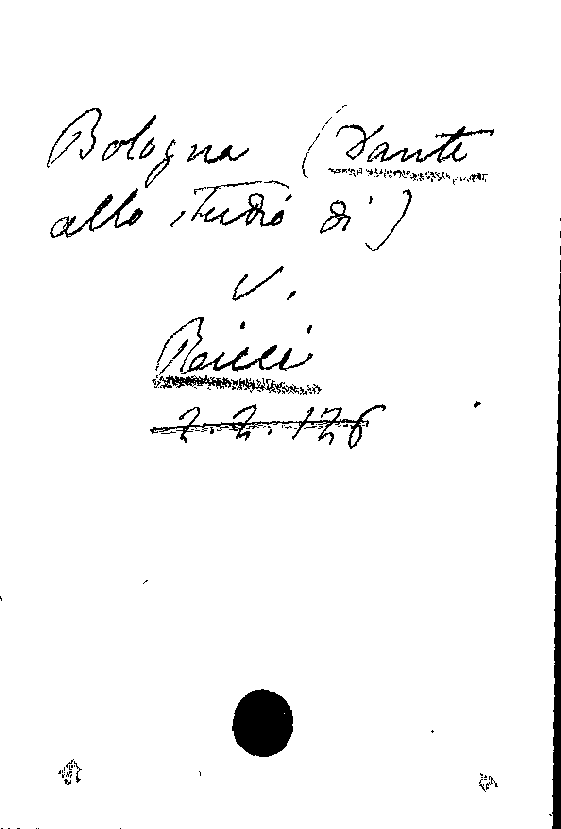 Bologna (Dante
allo studio di)
v.
Ricci
2.2.126